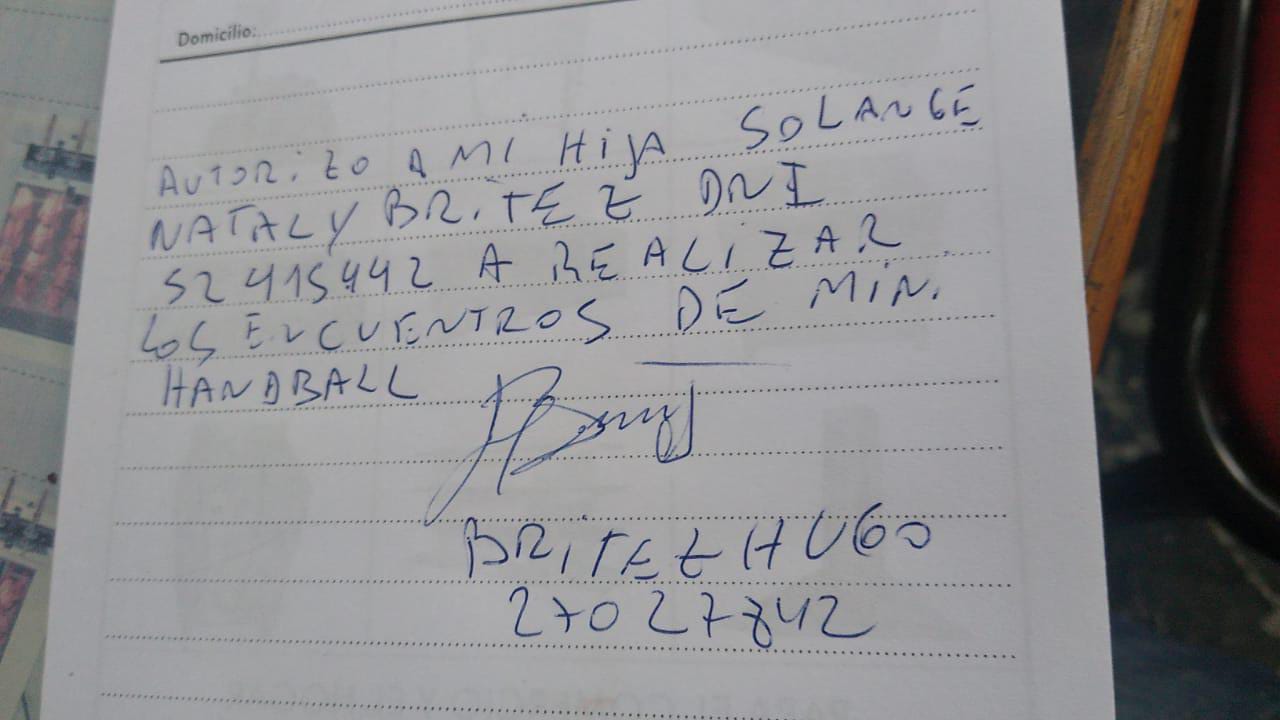 Domicilio:
AUTORIZO A MI HIJA SOLANGE
NATALY BRITEZ DNI
52415442 A REALIZAR
LOS ENCUENTROS DE MIN.
HANDBALL
BRITEZ HUGO
27027842